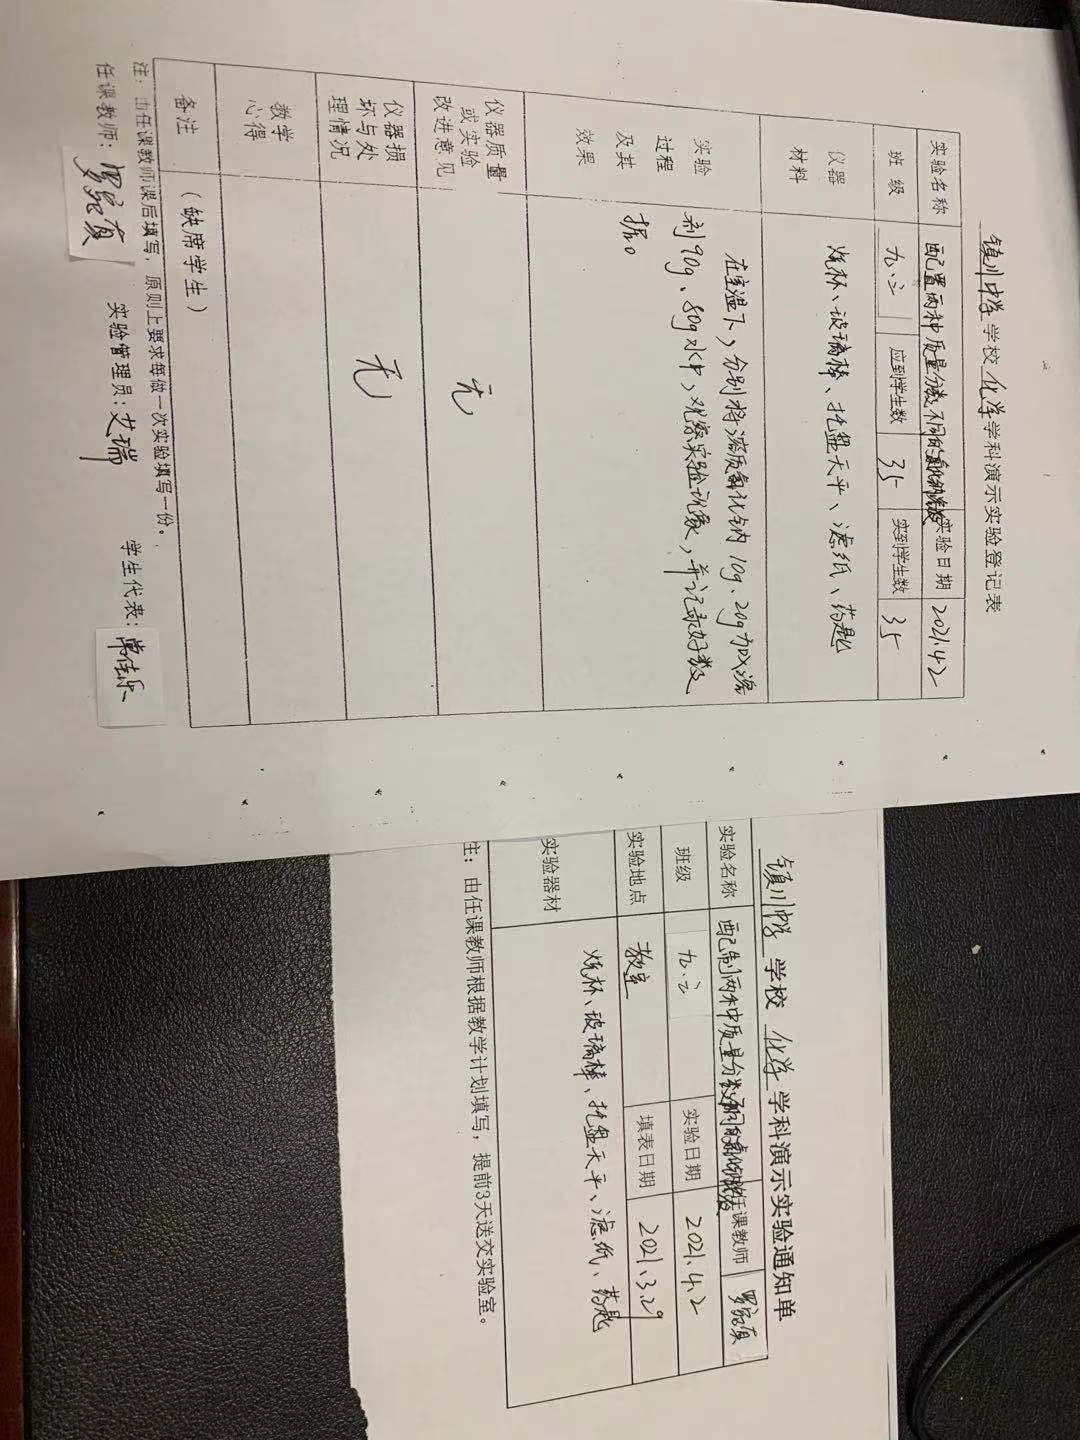 镇川中学学校化学学科演示实验登记表
实验名称 配置两种质量分数不同的 实验日期 2021.4.2
班级 九.二 应到学生数 35 实到学生数 35
仪器
材料
烧杯、玻璃棒、托盘天平、滤纸、药匙
实验
过程
及其
效果
在室温下，分别将溶质氯化钠10g、20g加以溶
剂90g、80g水中，观察实验现象，并记录好数
据。
仪器质量
或实验
改进意见
无
仪器损
坏与处
理情况
无
教学
心得
备注 （缺席学生）
注：由任课教师课后填写，原则上要求每做一次实验填写一份。
任课教师： 实验管理员：艾瑞 学生代表：
镇川中学 学校 化学 学科演示实验通知单
实验名称 配制两种质量分数不同的 任课教师
班级 九.二 实验日期 2021.4.2
实验地点 教室 填表日期 2021.3.29
实验器材 烧杯、玻璃棒、托盘天平、滤纸、药匙
注：由任课教师根据教学计划填写，提前3天送交实验室。